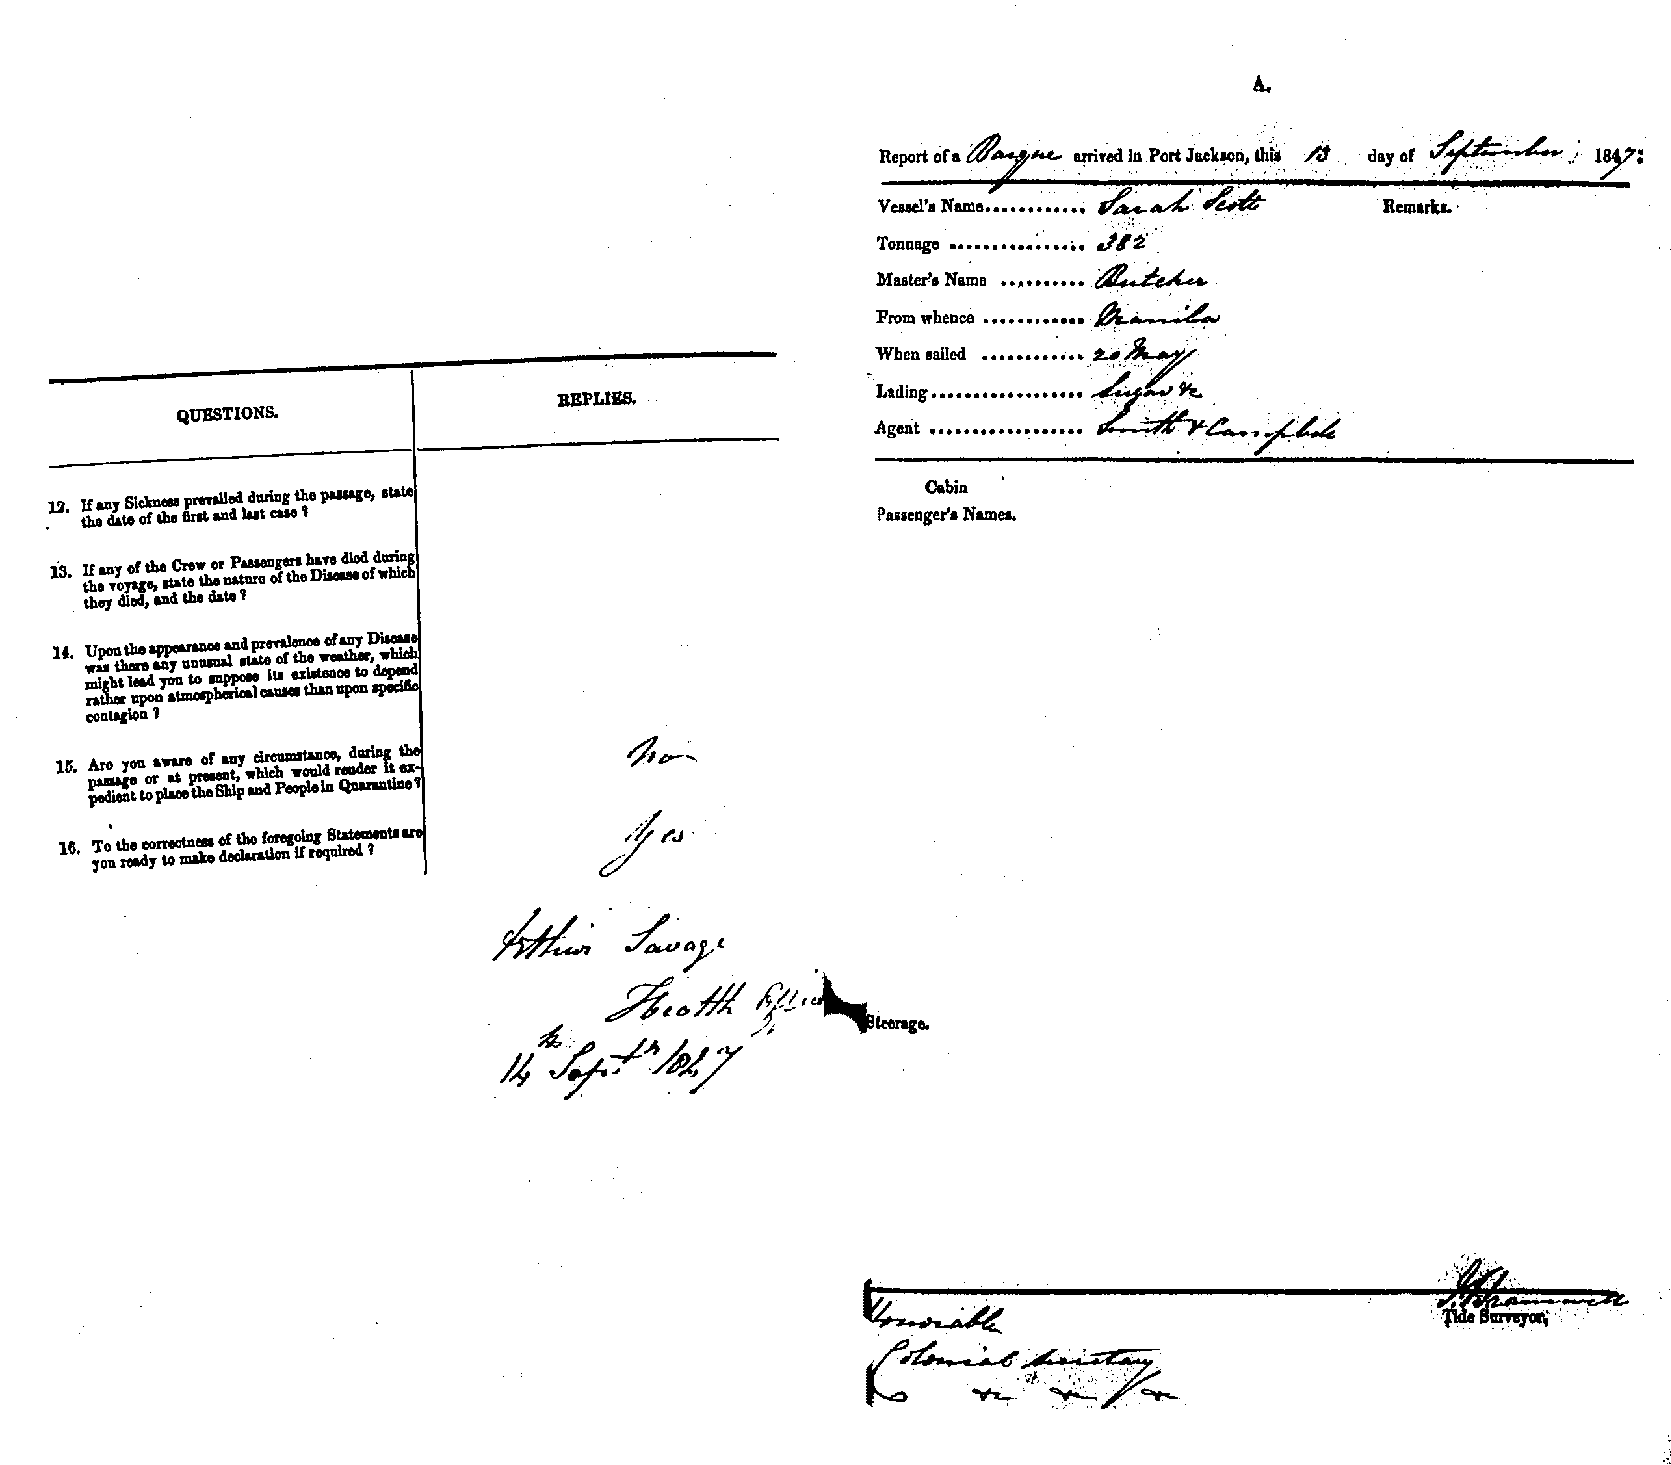 QUESTIONS.
REPLIES.
12. If any Sickness prevailed during the passage, state
the date of the first and last case ?
13. If any of the Crew or Passengers have died during
the voyage, state the nature of the Disease of which
they died, and the date ?
14. Upon the appearance and prevalence of any Disease
was there any unusual state of the weather, which
might lead you to suppose its existence to depend
rather upon atmospherical causes than upon specific
contagion ?
15. Are you aware of any circumstance, during the
passage or at present, which would render it ex-
pedient to place the Ship and People in Quarantine ?
No
16. To the correctness of the foregoing Statements are
you ready to make declaration if required ?
Yes
Arthur Savage
Health Officer
14th Septr 1847
A.
Report of a Barque arrived in Port Jackson, this 13 day of September 1847:
Vessel's Name............ Sarah Scott
Remarks.
Tonnage ................ 382
Master's Name .......... Butcher
From whence ............ Manila
When sailed ............ 20 May
Lading.................. Sugar &c
Agent .................. Smith & Campbell
Cabin
Passenger's Names.
Steerage.
Tide Surveyor,
Honorable
Colonial Secretary
&c &c &c